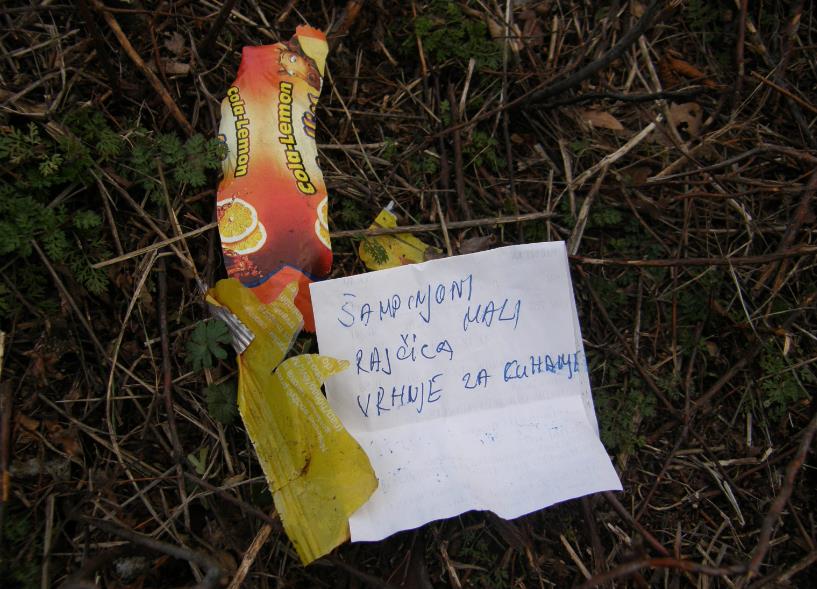 cola-Lemon
Cola-Lemon
ŠAMPINJONI
MALI
RAJČICA
VRHNJE ZA KUHANJE